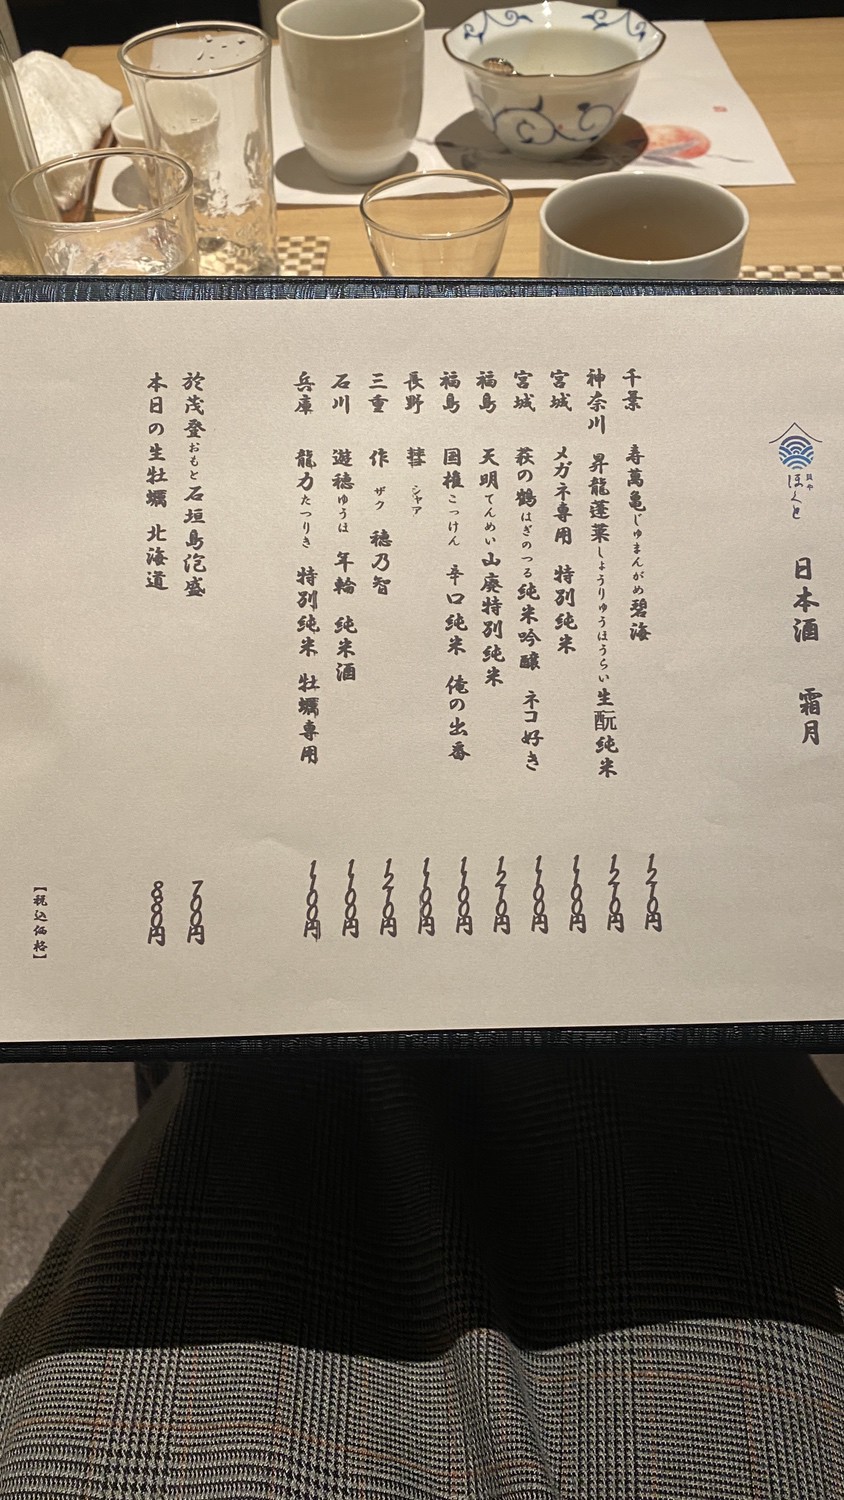 貝や
ほくと
日本酒　霜月
千葉　寿萬亀じゅまんがめ碧海　1210円
神奈川　昇龍蓬莱しょうりゅうほうらい生酛純米　1210円
宮城　メガネ専用　特別純米　1100円
宮城　萩の鶴はぎのつる純米吟醸　ネコ好き　1100円
福島　天明てんめい山廃特別純米　1210円
福島　国権こっけん　辛口純米　俺の出番　1100円
長野　彗シャア　1100円
三重　作ザク　穂乃智　1210円
石川　遊穂ゆうほ　年輪　純米酒　1100円
兵庫　龍力たつりき　特別純米　牡蠣専用　1100円
於茂登おもと石垣島泡盛　700円
本日の生牡蠣　北海道　880円
【税込価格】